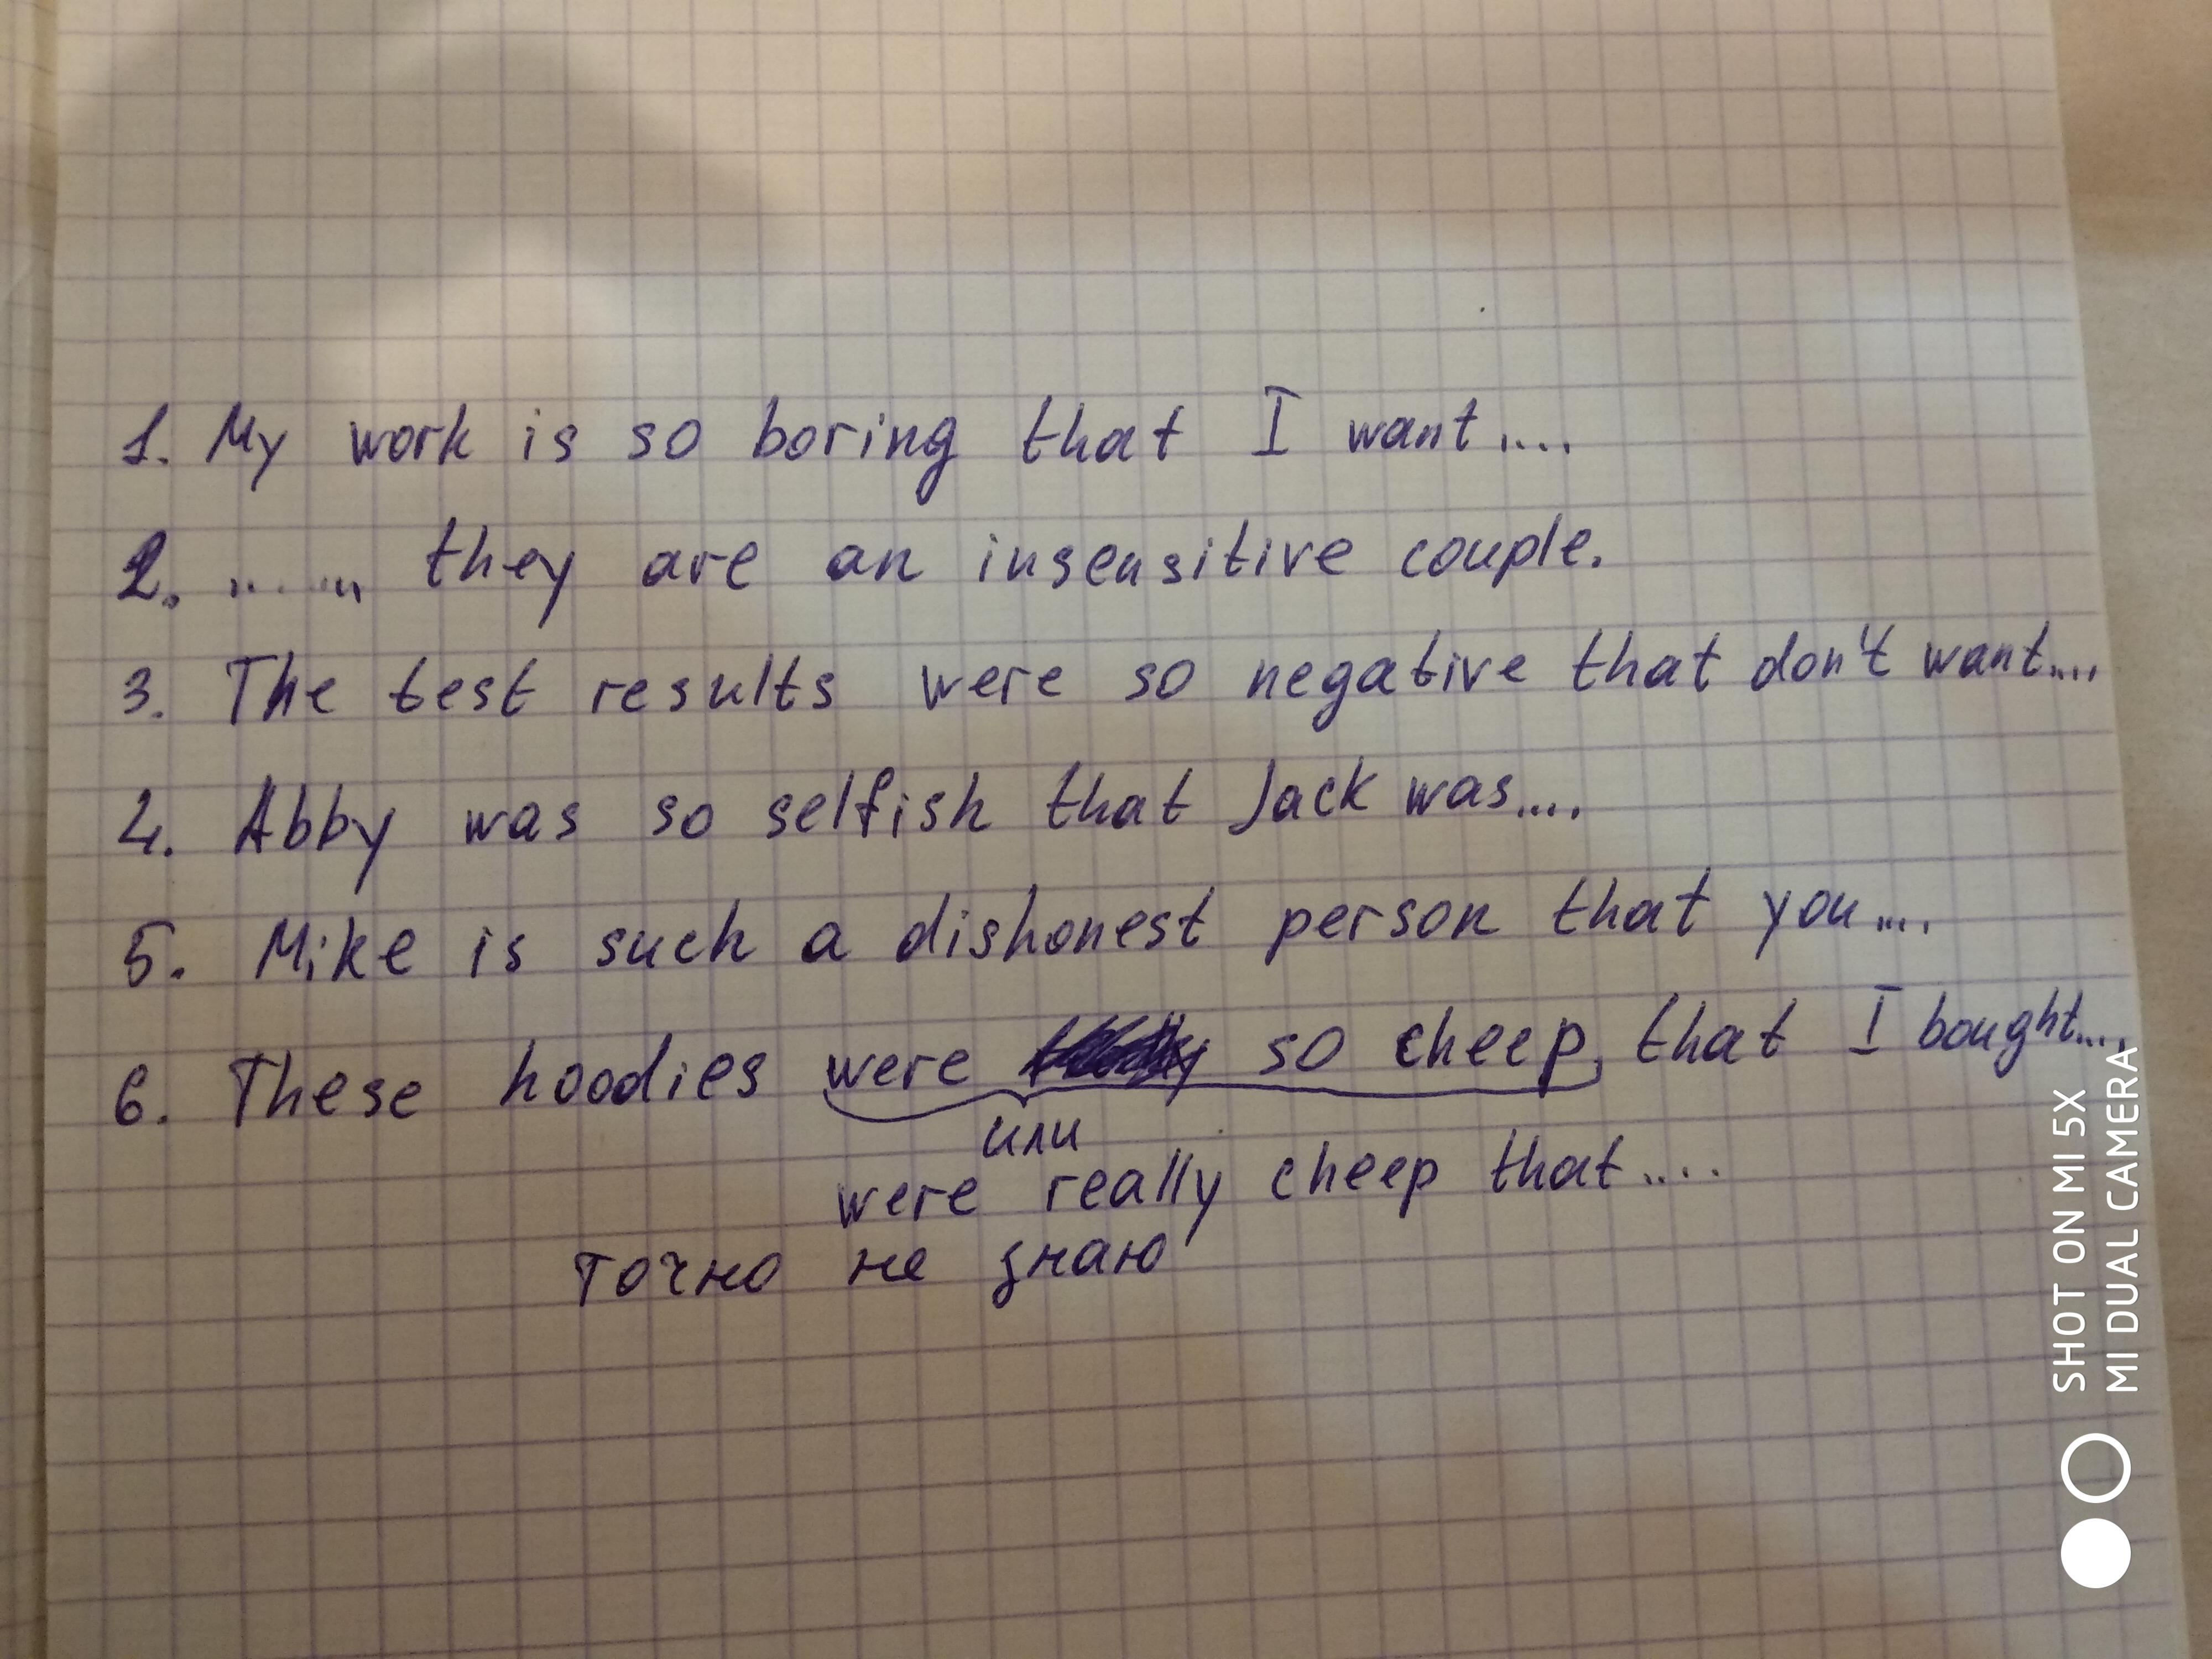 1. My work is so boring that I want....
2. ...... they are an insensitive couple.
3. The test results were so negative that don't want....
4. Abby was so selfish that Jack was....
5. Mike is such a dishonest person that you....
6. These hoodies were so cheep, that I bought....
или
were really cheep that....
точно не знаю
SHOT ON MI 5X
MI DUAL CAMERA